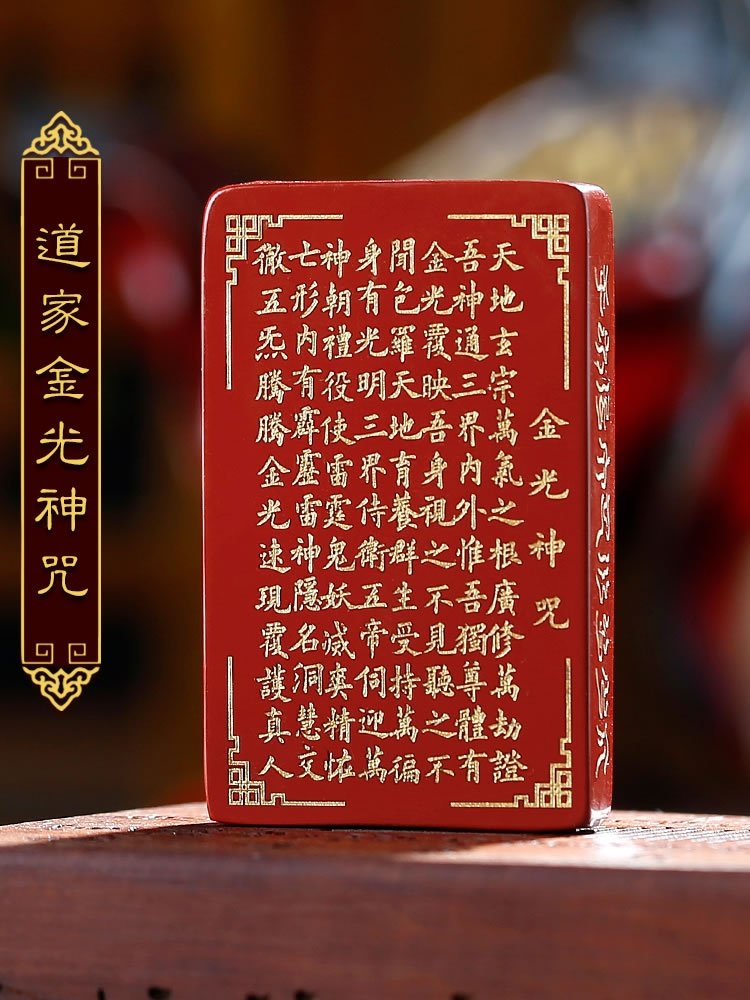 道家金光神咒
金光神咒
天地玄宗萬氣之根廣修萬劫證
吾神通三界内外惟吾獨尊體有
金光覆映吾身視之不見聽之不
聞包羅天地育養群生受持萬徧
身有光明三界侍衛五帝伺迎萬
神朝禮役使雷霆鬼妖滅爽精恠
亡形内有霹靂雷神隱名洞慧交
徹五炁騰騰金光速現覆護真人